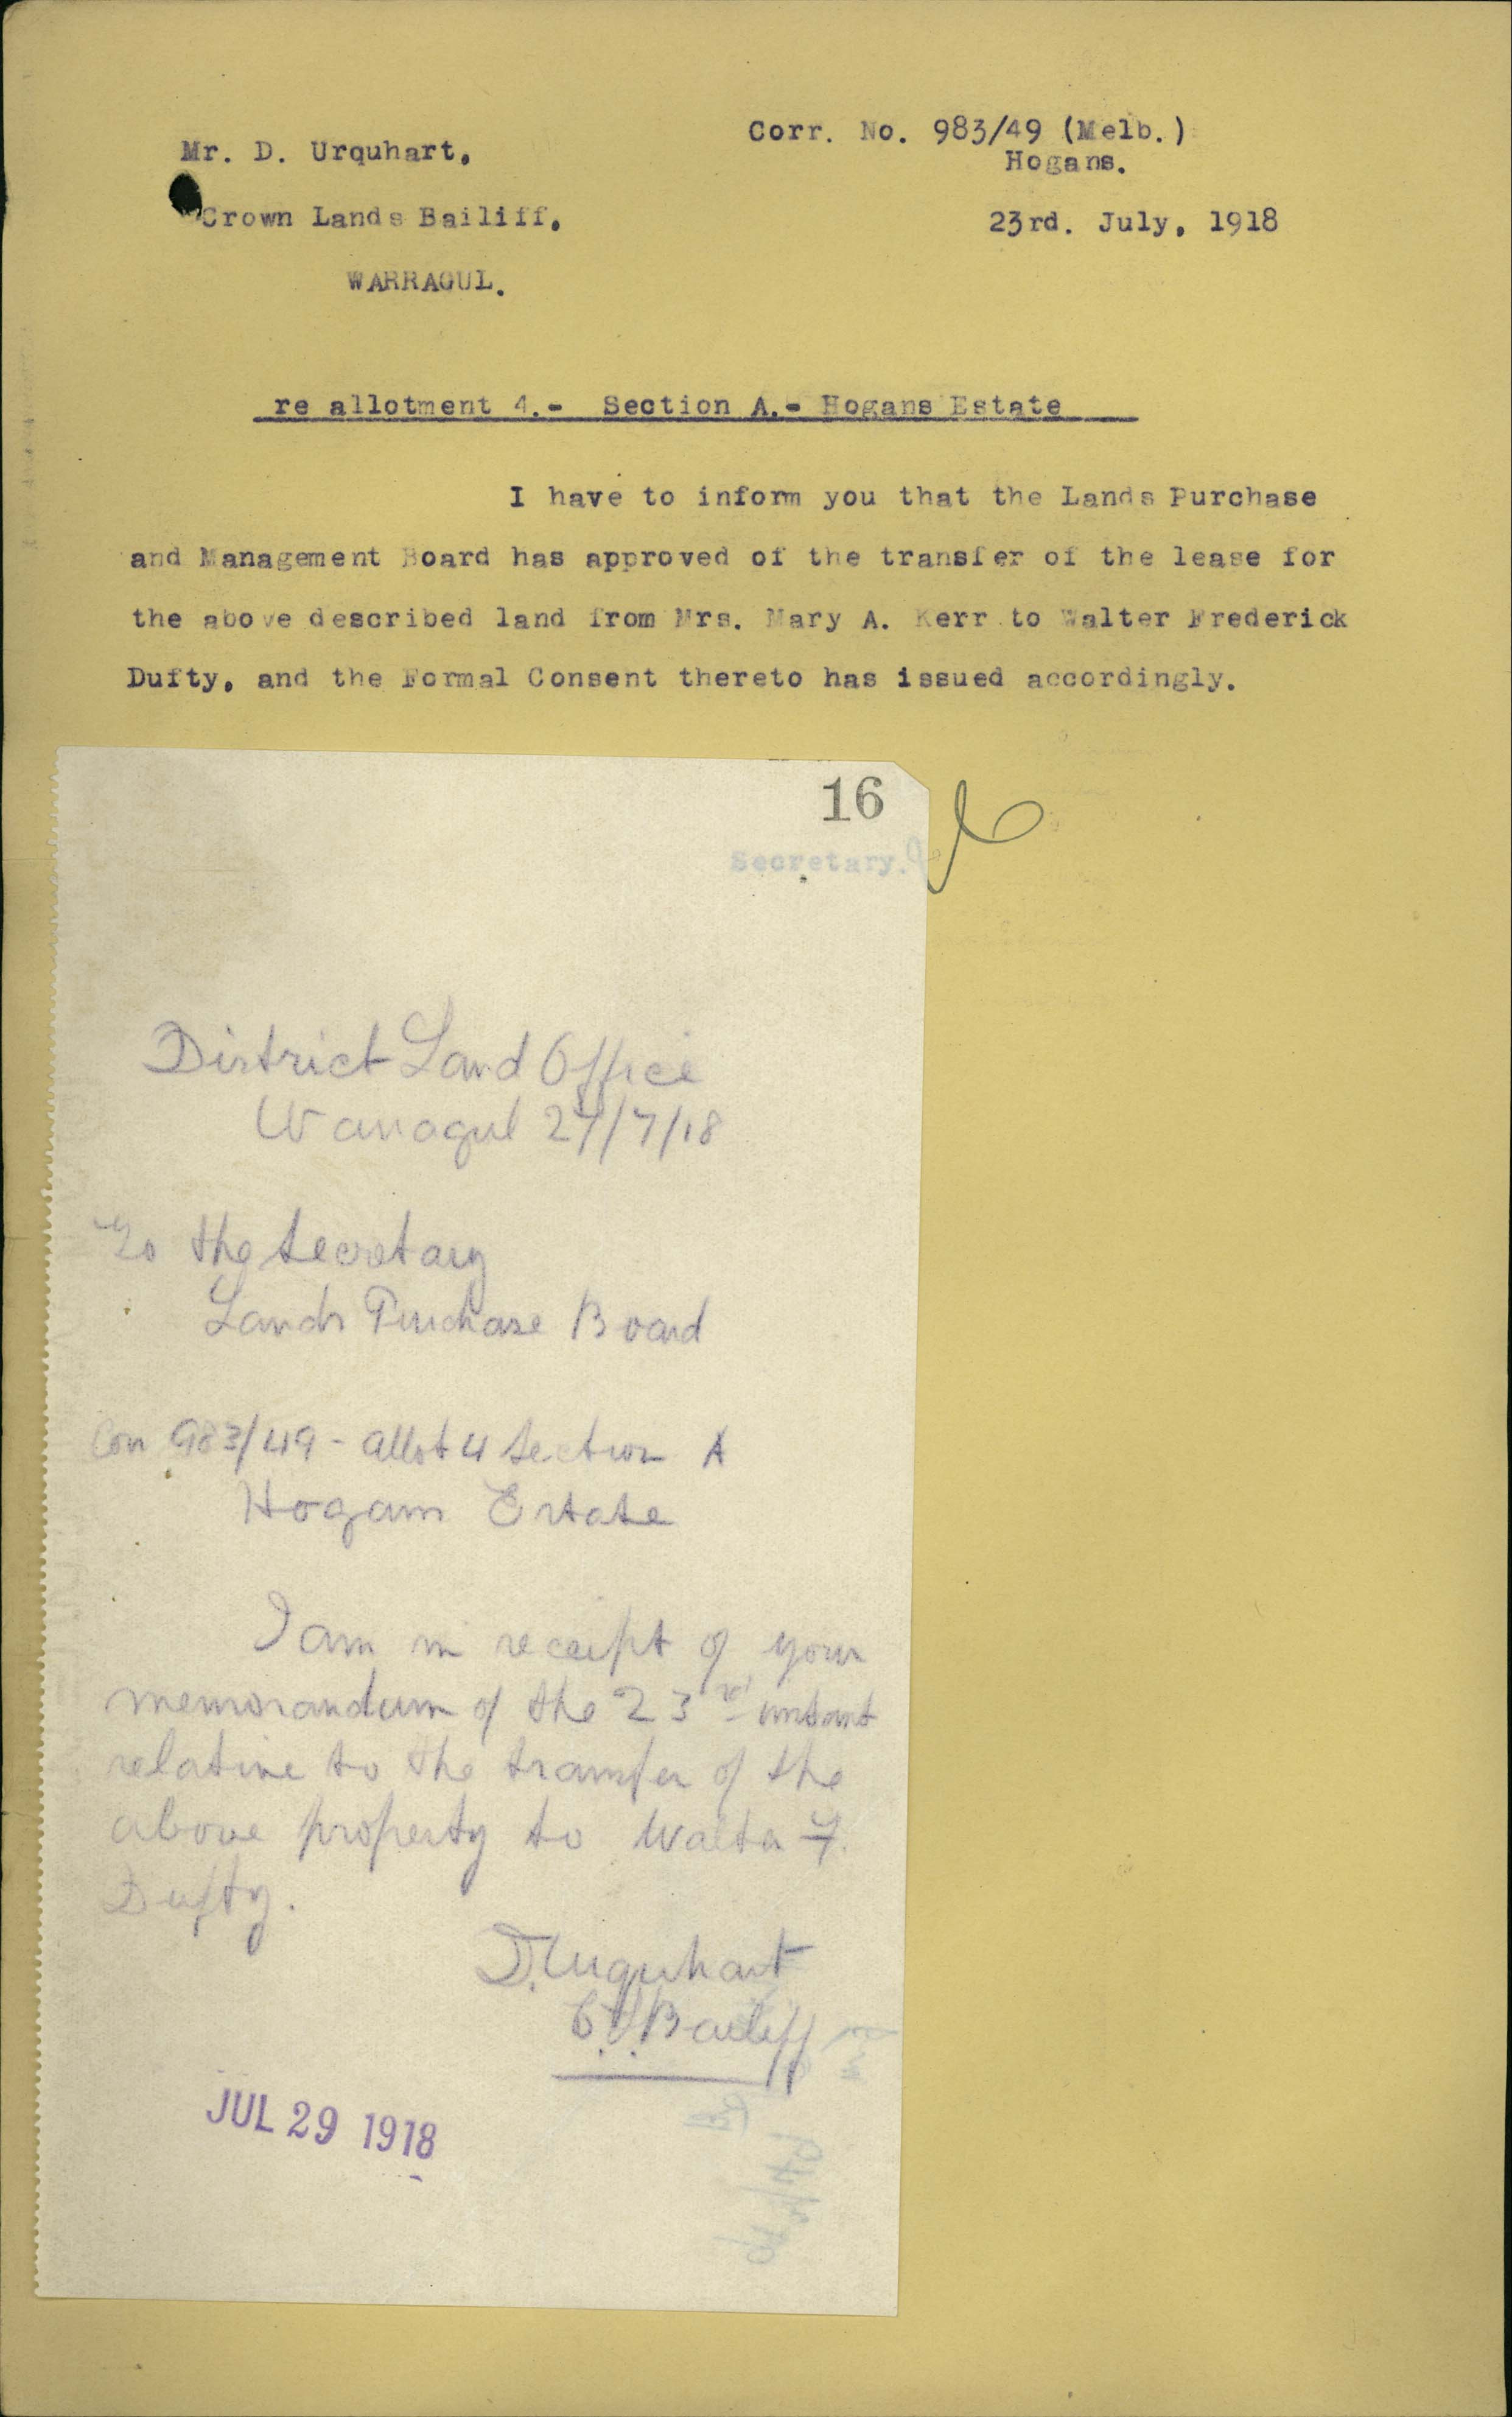 Corr. No. 983/49 (Melb.)
Hogans.
Mr. D. Urquhart,
Crown Lands Bailiff,
23rd. July, 1918
WARRAGUL.
re allotment 4.- Section A.- Hogans Estate
I have to inform you that the Lands Purchase
and Management Board has approved of the transfer of the lease for
the above described land from Mrs. Mary A. Kerr to Walter Frederick
Dufty, and the Formal Consent thereto has issued accordingly.
16
Secretary.
District Land Office
Warragul 27/7/18
To the Secretary
Lands Purchase Board
Corr 983/49 - allot 4 Section A
Hogans Estate
I am in receipt of your
memorandum of the 23rd instant
relative to the transfer of the
above property to Walter F.
Dufty.
D. Urquhart
C.L. Bailiff
JUL 29 1918